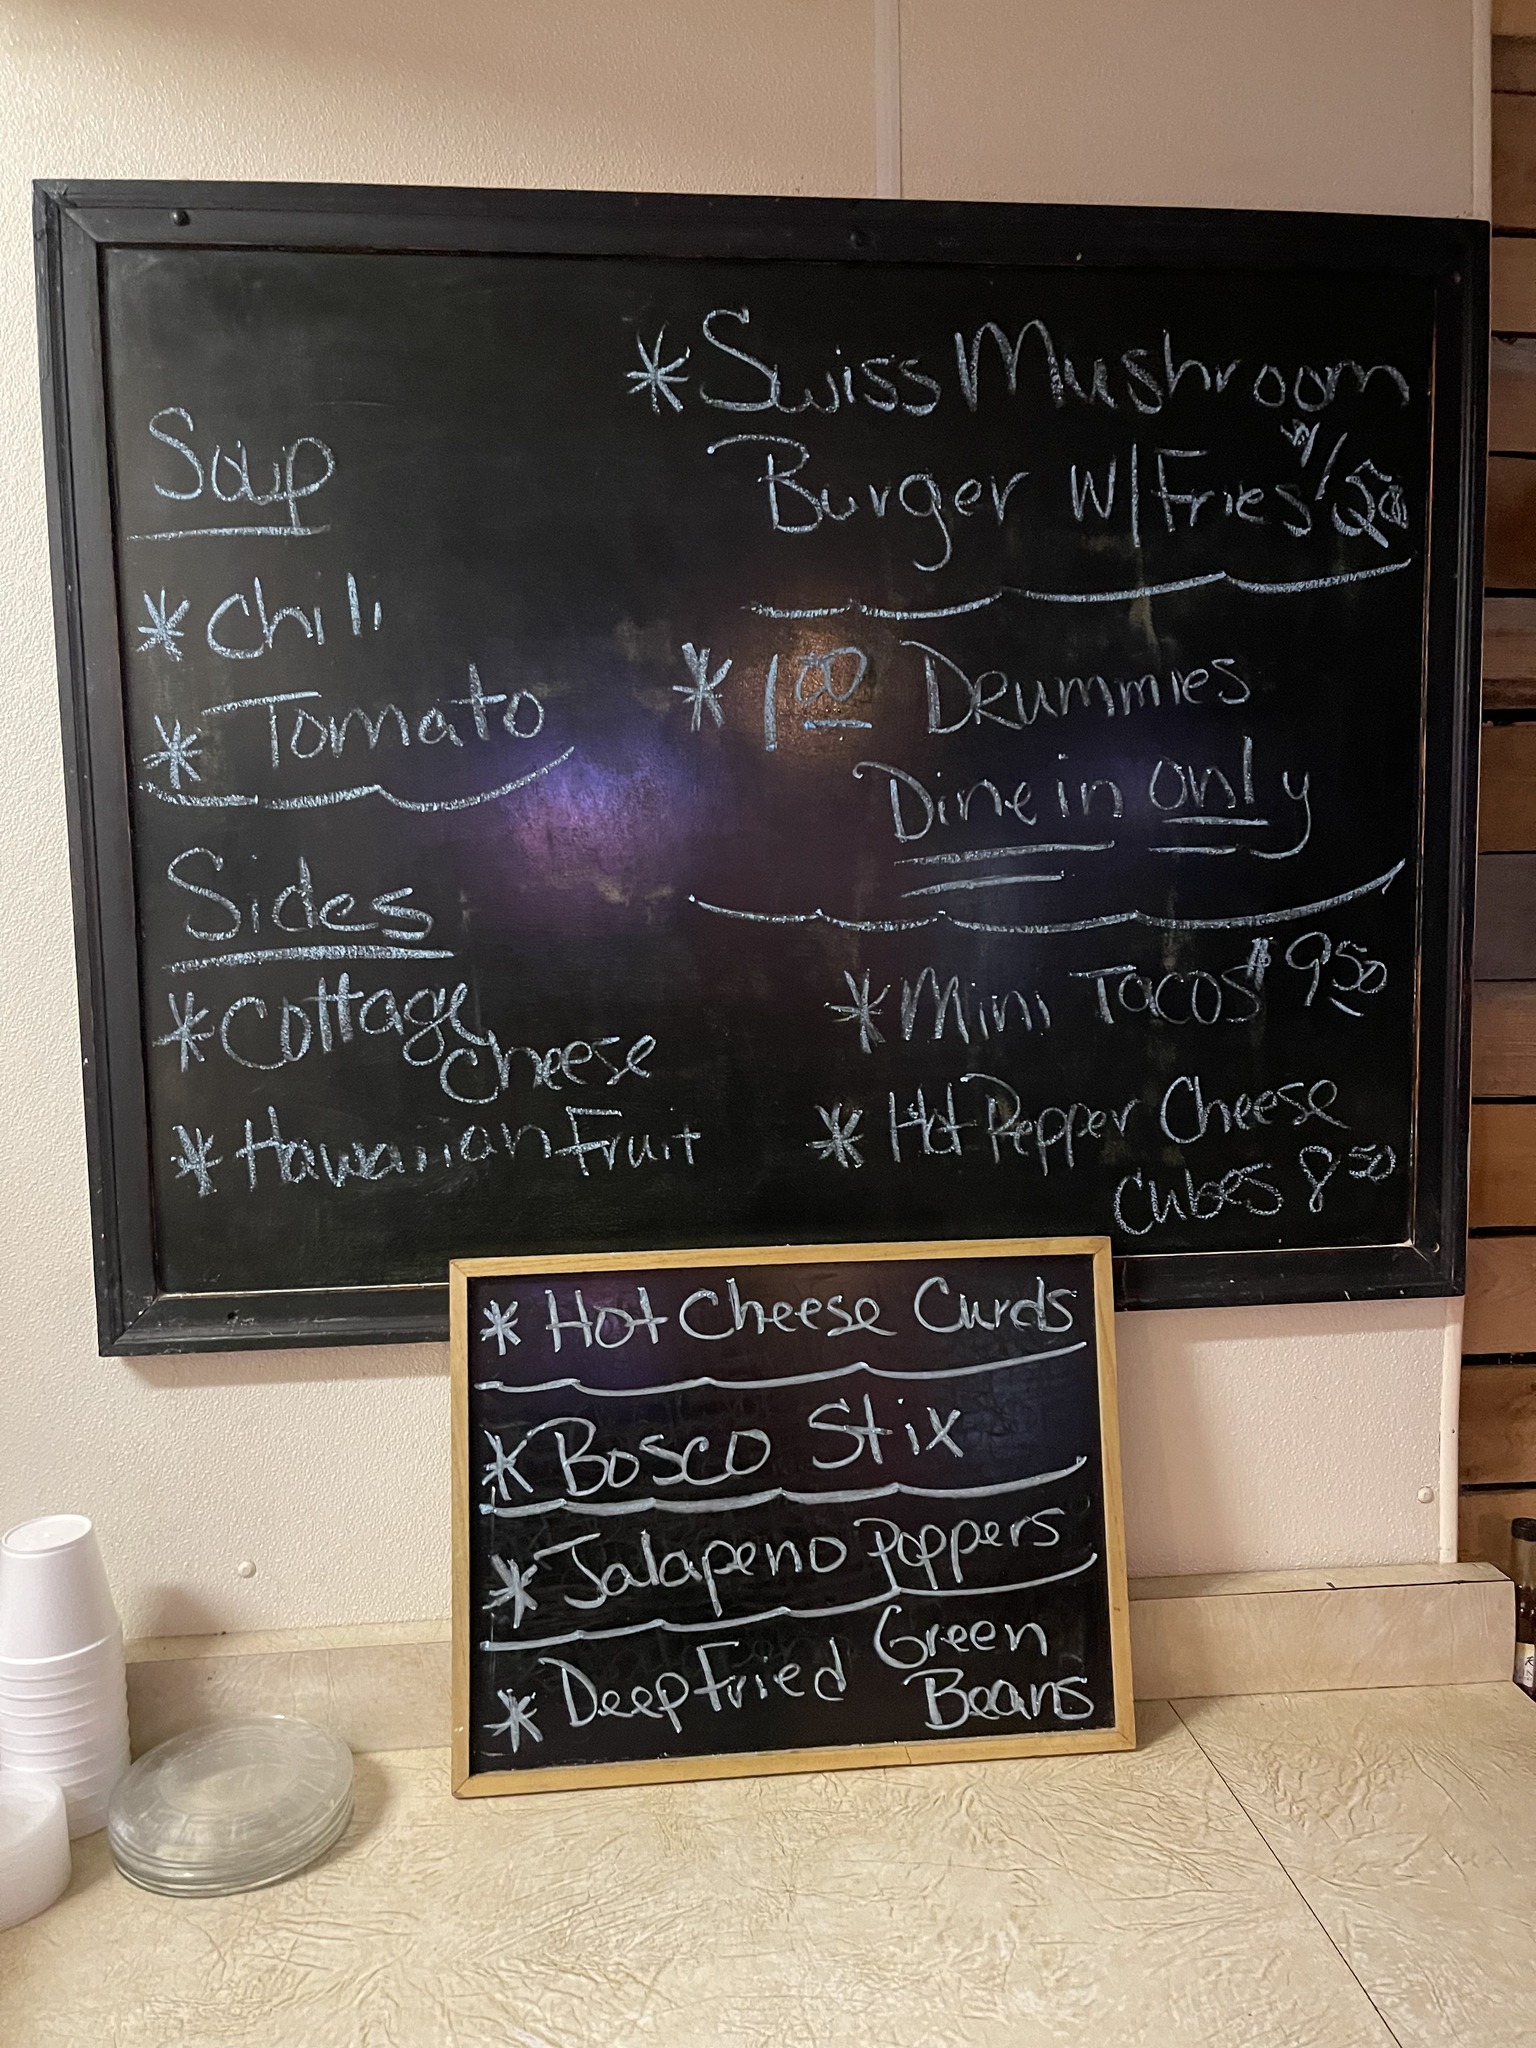 Soup
* Chili
* Tomato
Sides
* Cottage
Cheese
* Hawaiian Fruit
* Swiss Mushroom
Burger W/Fries
* 1 00 Drummies
Dine in only
* Mini Tacos $9 50
* Hot Pepper Cheese
Cubes 8 50
* Hot Cheese Curds
* Bosco Stix
* Jalapeno Poppers
* Deep Fried Green
Beans